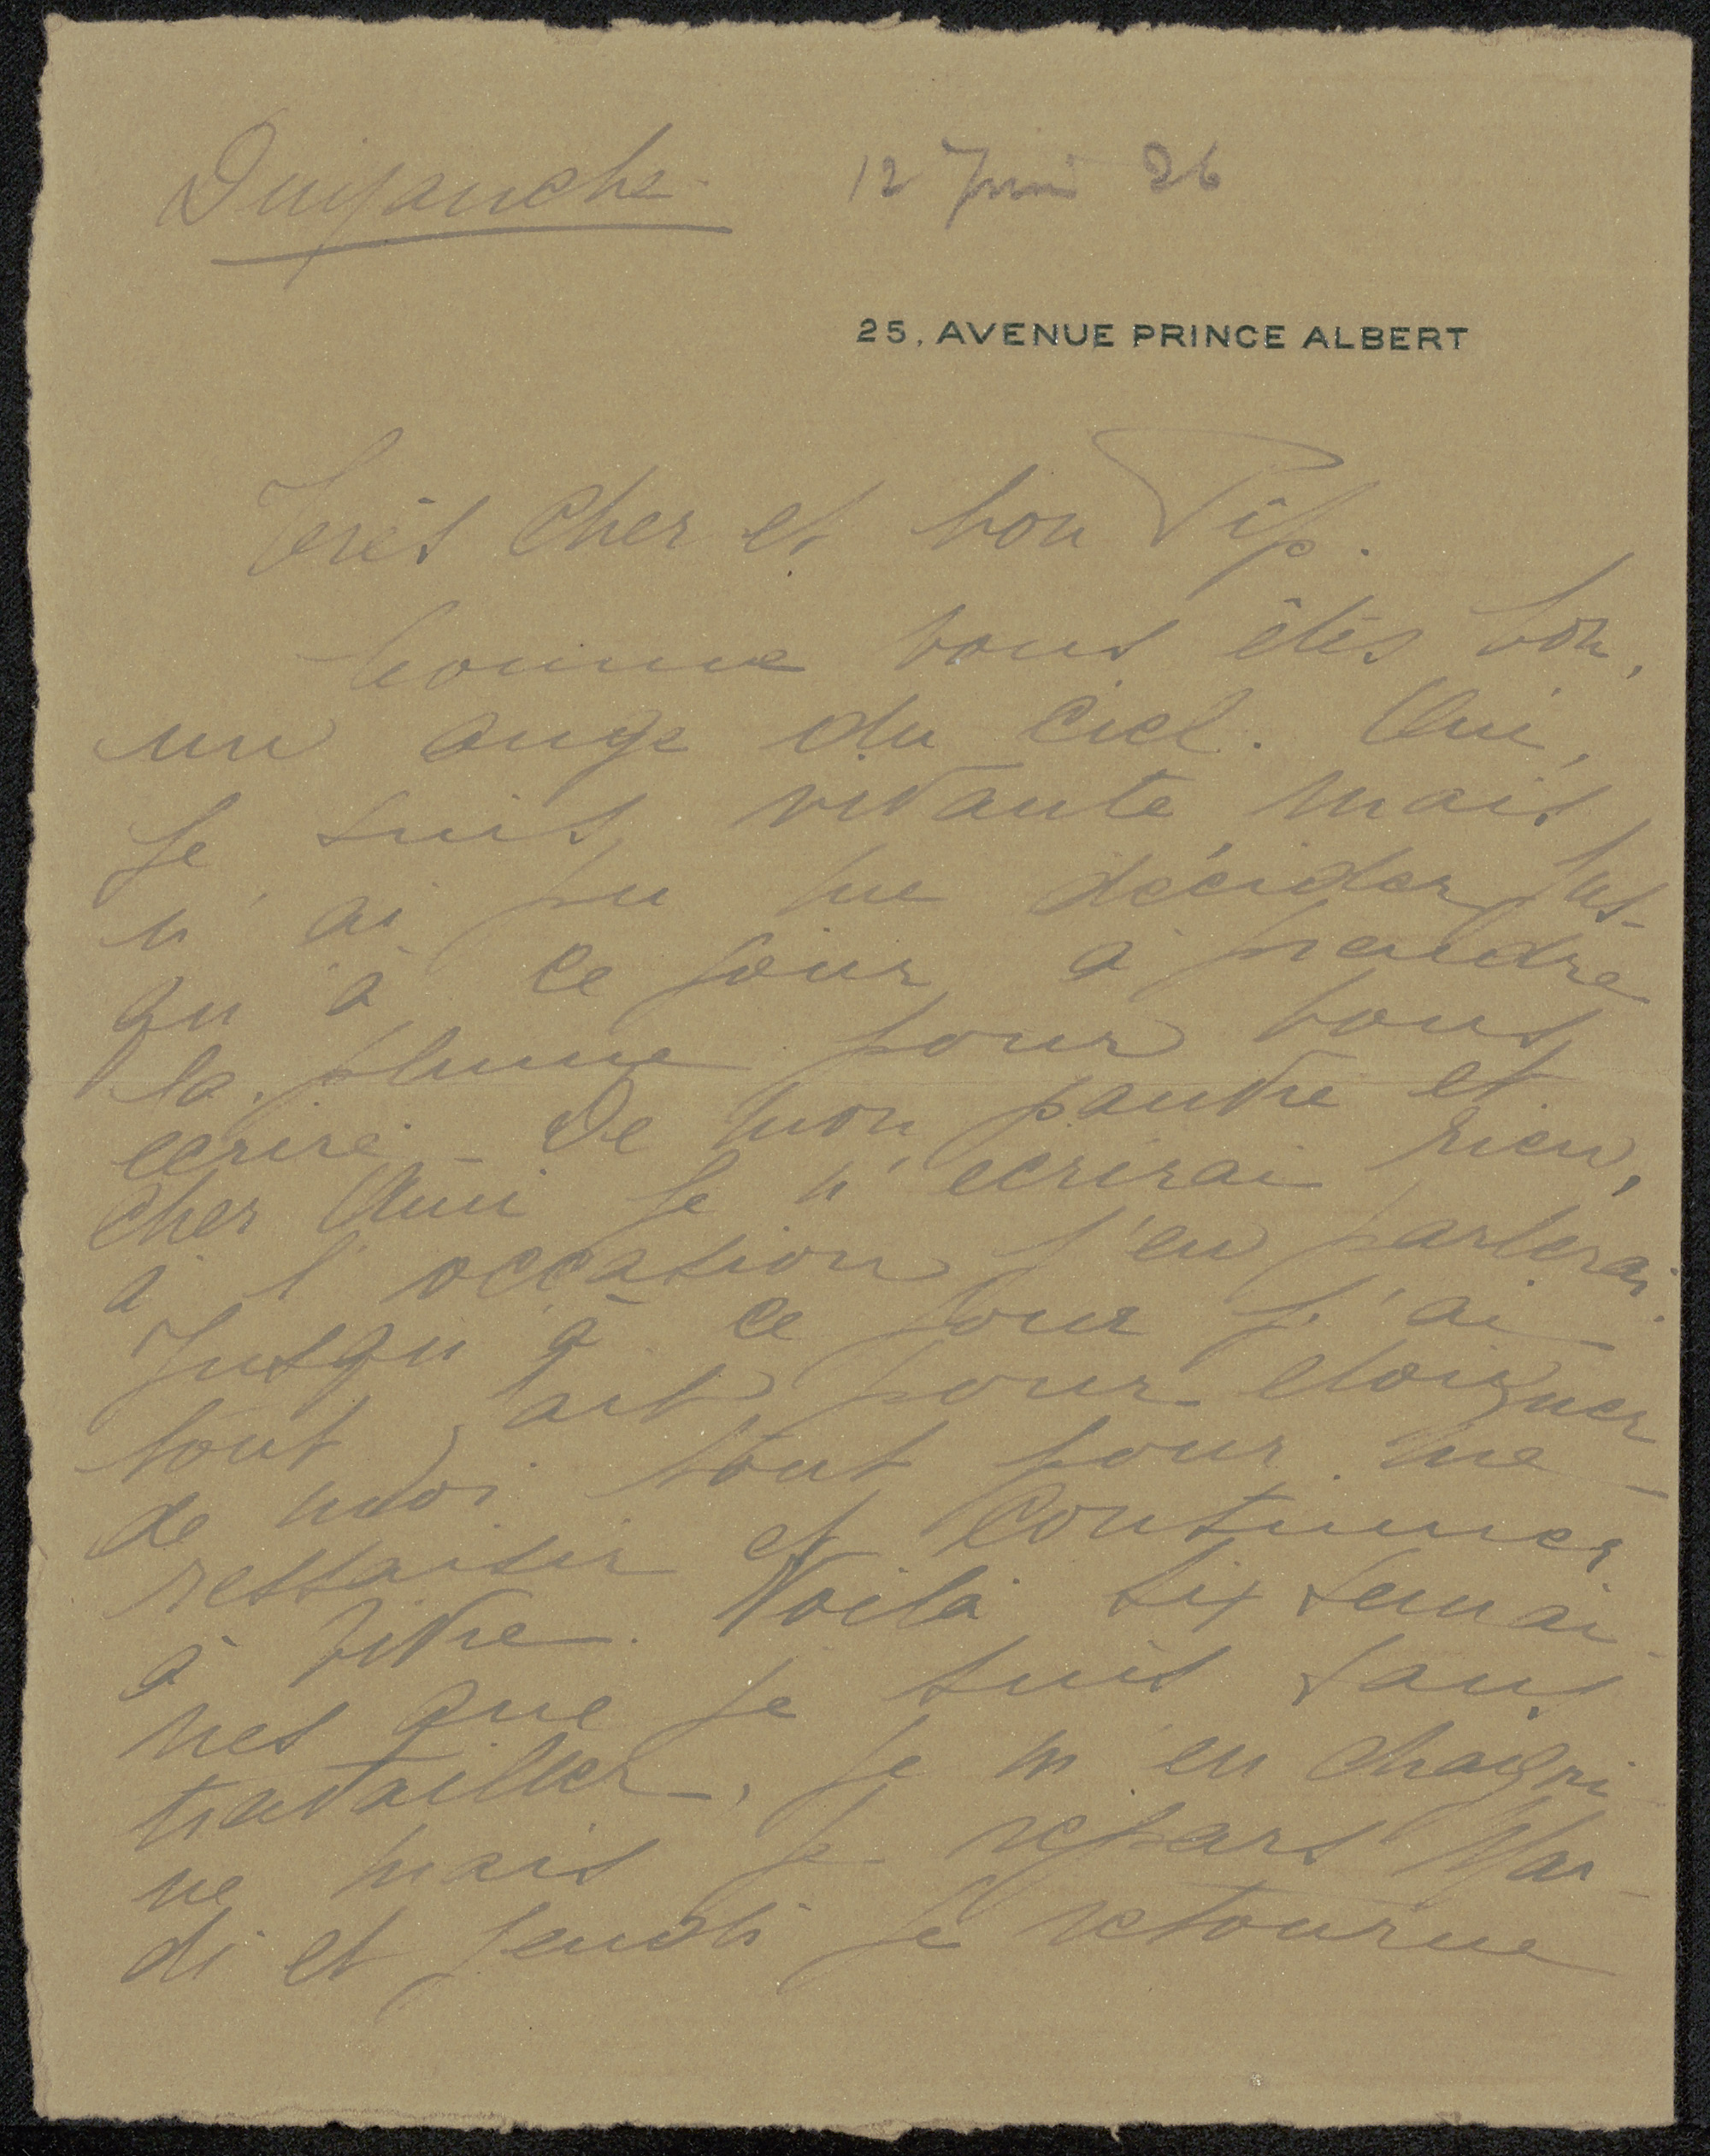 Dimanche 12 Juin 26
25, AVENUE PRINCE ALBERT
Très Cher et bon Pip.
Comme vous êtes bon,
un ange du Ciel. Oui,
je suis vivante mais
n'ai pu me décider jus-
qu'à ce jour à prendre
la plume pour vous
ecrire – De mon pauvre et
cher Ami je n'ecrirai rien,
à l'occasion j'en parlerai.
Jusqu'à ce jour j'ai
tout fait pour eloigner
de moi tout pour me
ressaisir et Continuer
à vivre. Voilà six semai
nes que je suis sans
travailler, je m'en chagri
ne mais je repars Mar-
di et jeudi je retourne